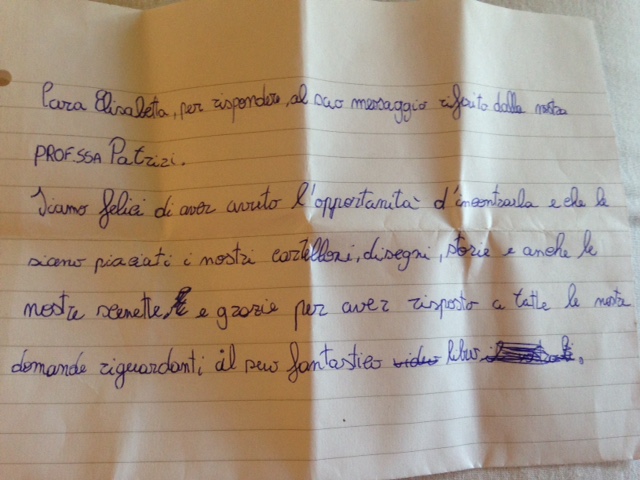 Cara Elisabetta, per rispondere, al suo messaggio riferito dalla nostra
PROF.SSA Patrizi.
Siamo felici di aver avuto l'opportunità d'incontrarla e che le
siano piaciuti i nostri cartelloni, disegni, storie e anche le
nostre scenette, e grazie per aver risposto a tutte le nostre
domande riguardanti il suo fantastico video libro.